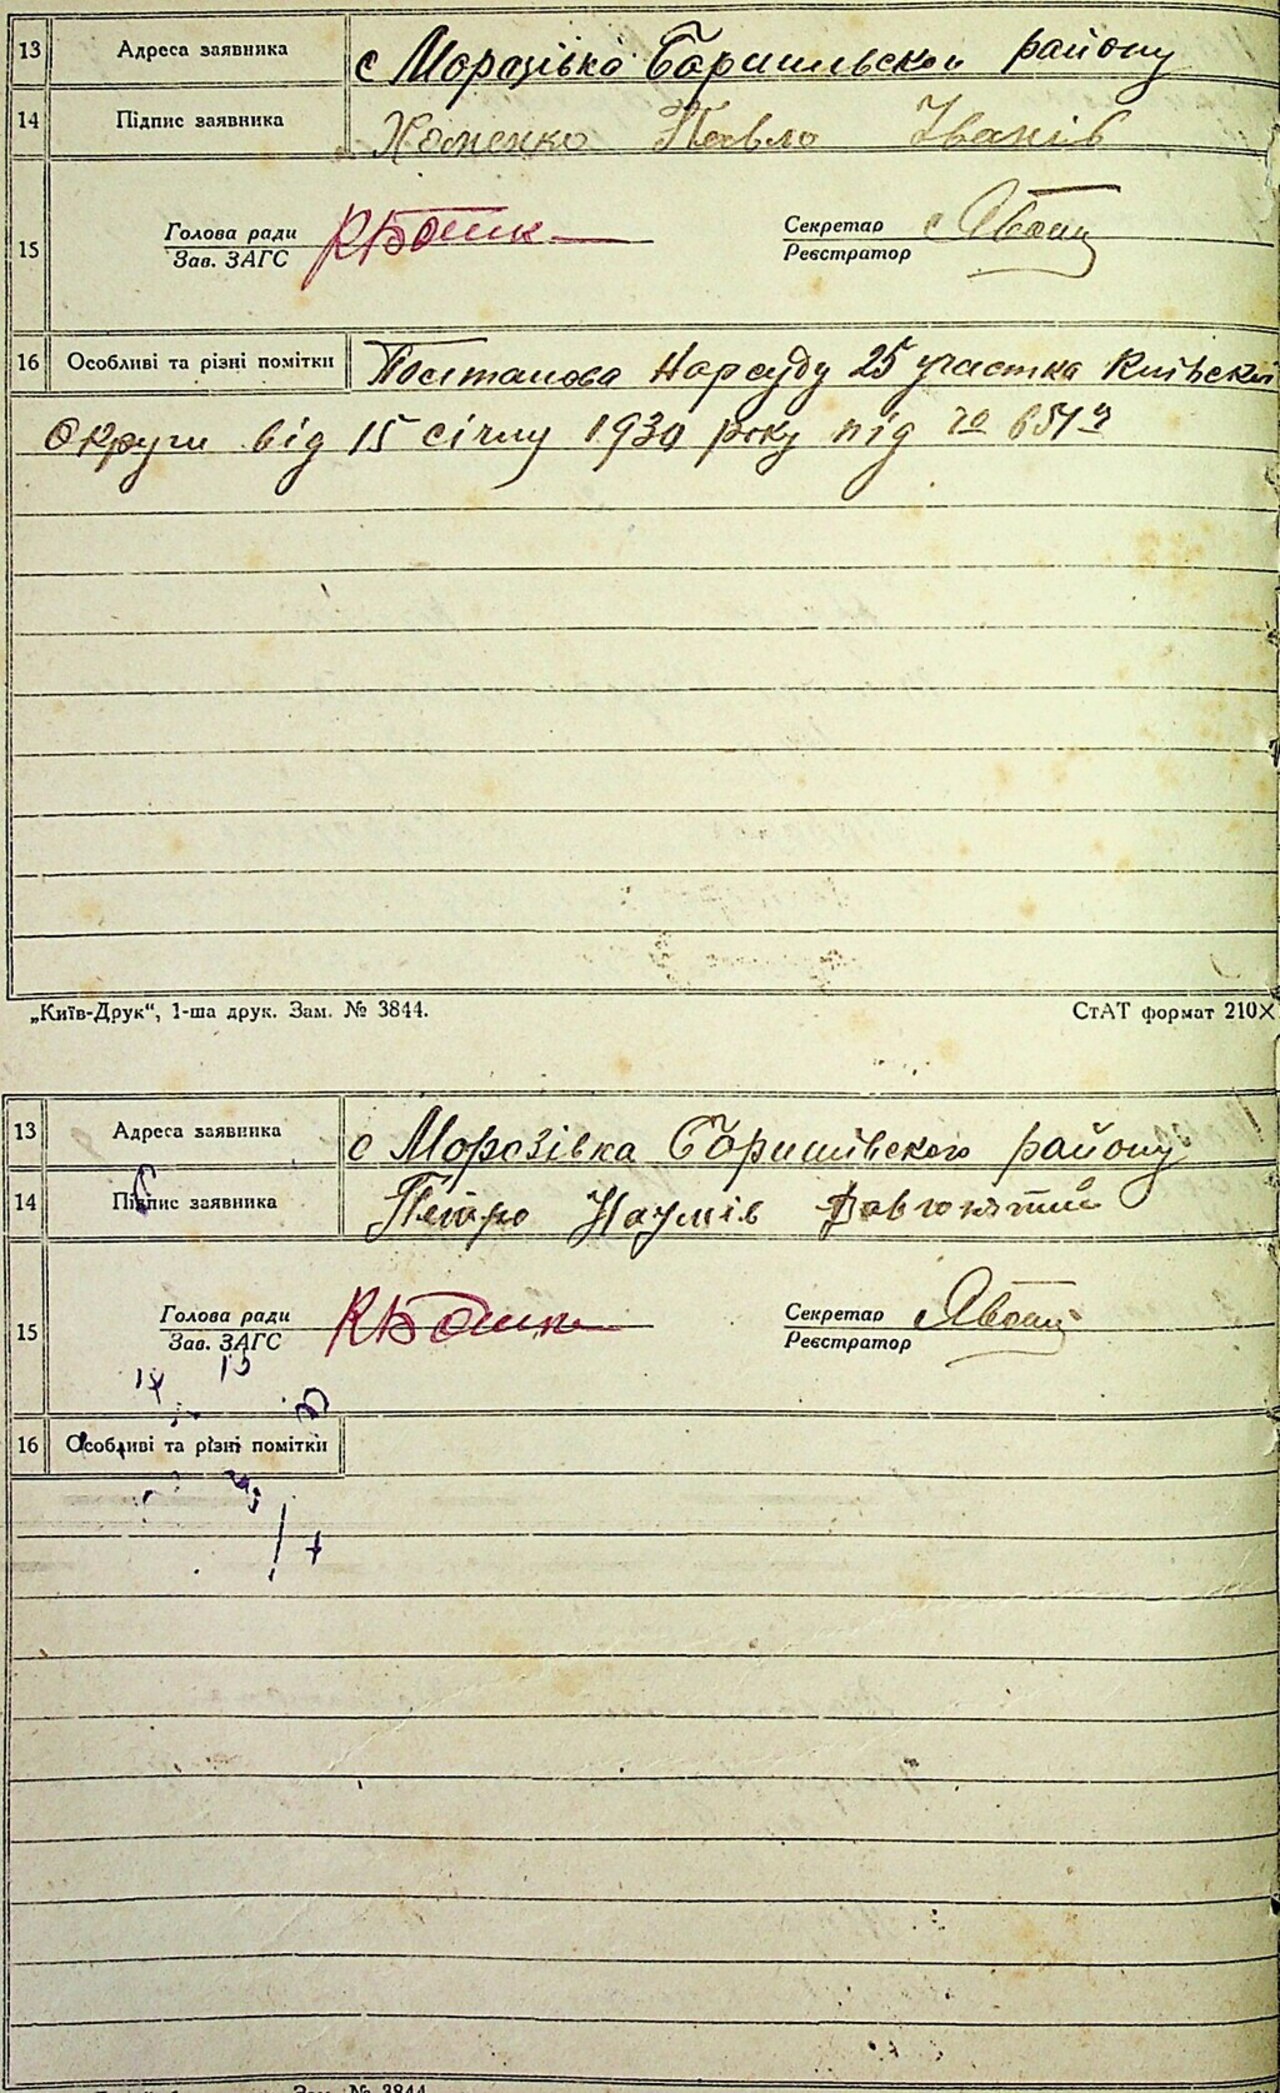 13 Адреса заявника с Морозівка Баришельскои району
14 Підпис заявника Хоменко Павло Іванів
15 Голова ради Секретар
Зав. ЗАГС Реєстратор
16 Особливі та різні помітки Постанова Нарсуду 25 участка Київскої
Округи від 15 січну 1930 року під
„Київ-Друк“, 1-ша друк. Зам. № 3844. СтАТ формат 210×
13 Адреса заявника с Морозівка Баришівского району
14 Підпис заявника Петро Наумів
15 Голова ради Секретар
Зав. ЗАГС Реєстратор
16 Особливі та різні помітки
Зам. № 3844